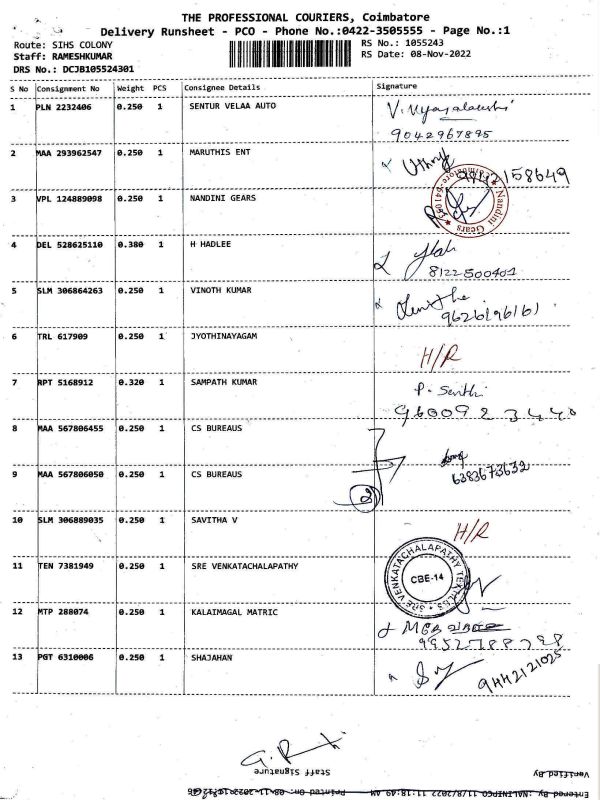 THE PROFESSIONAL COURIERS, Coimbatore
Delivery Runsheet - PCO - Phone No.:0422-3505555 - Page No.:1
Route: SIHS COLONY RS No.: 1055243
Staff: RAMESHKUMAR RS Date: 08-Nov-2022
DRS No.: DCJB105524301
S No Consignment No Weight PCS Consignee Details Signature
1 PLN 2232406 0.250 1 SENTUR VELAA AUTO
9042967895
2 MAA 293962547 0.250 1 MARUTHIS ENT
3 VPL 124889098 0.250 1 NANDINI GEARS
Nandini Gears
4 DEL 528625110 0.380 1 H HADLEE
8122500401
5 SLM 306864263 0.250 1 VINOTH KUMAR
9626196161
6 TRL 617909 0.250 1 JYOTHINAYAGAM
H/R
7 RPT 5168912 0.320 1 SAMPATH KUMAR
9600923440
8 MAA 567806455 0.250 1 CS BUREAUS
9 MAA 567806050 0.250 1 CS BUREAUS
6383673632
10 SLM 306889035 0.250 1 SAVITHA V
H/R
11 TEN 7381949 0.250 1 SRE VENKATACHALAPATHY
SRE VENKATACHALAPATHY TEXTILES
CBE-14
12 MTP 288074 0.250 1 KALAIMAGAL MATRIC
13 PGT 6310006 0.250 1 SHAJAHAN
9442121025
Staff Signature
Verified By